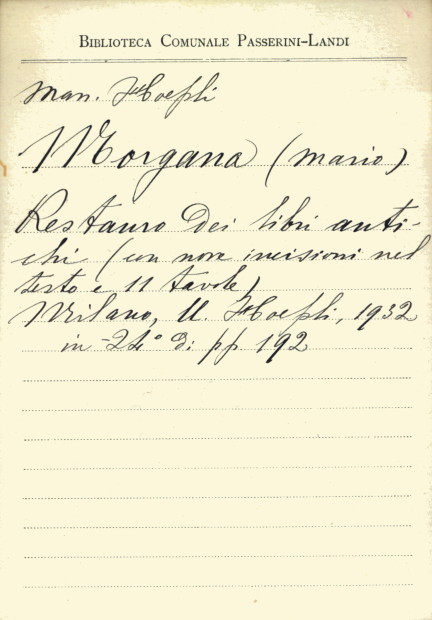 BIBLIOTECA COMUNALE PASSERINI-LANDI
Man. Hoepli
Morgana (Mario)
Restauro dei libri anti-
chi (con nove incisioni nel
testo e 11 tavole)
Milano, U. Hoepli, 1932
in -24° di pp 192